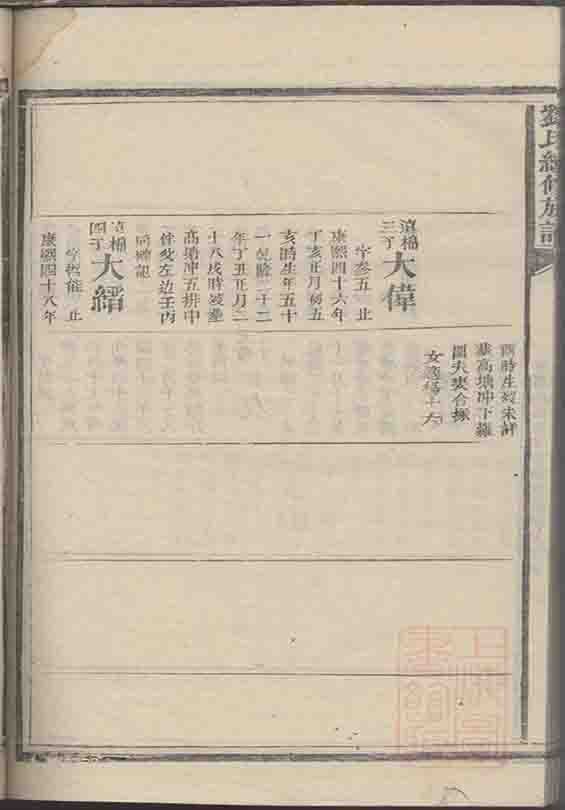 劉氏續修族譜
酉時生歿未詳
葬高塘冲下羅
圍夫妻合塚
女適楊十六
遠楊三丁
大偉
字參五 止
康熙四十六年
丁亥正月初五
亥時生年五十
一乾隆二十二
年丁丑正月二
十八戌時歿葬
高塘冲五排中
伴父左边壬丙
四丁
大縉
字哲能 止
康熙四十八年